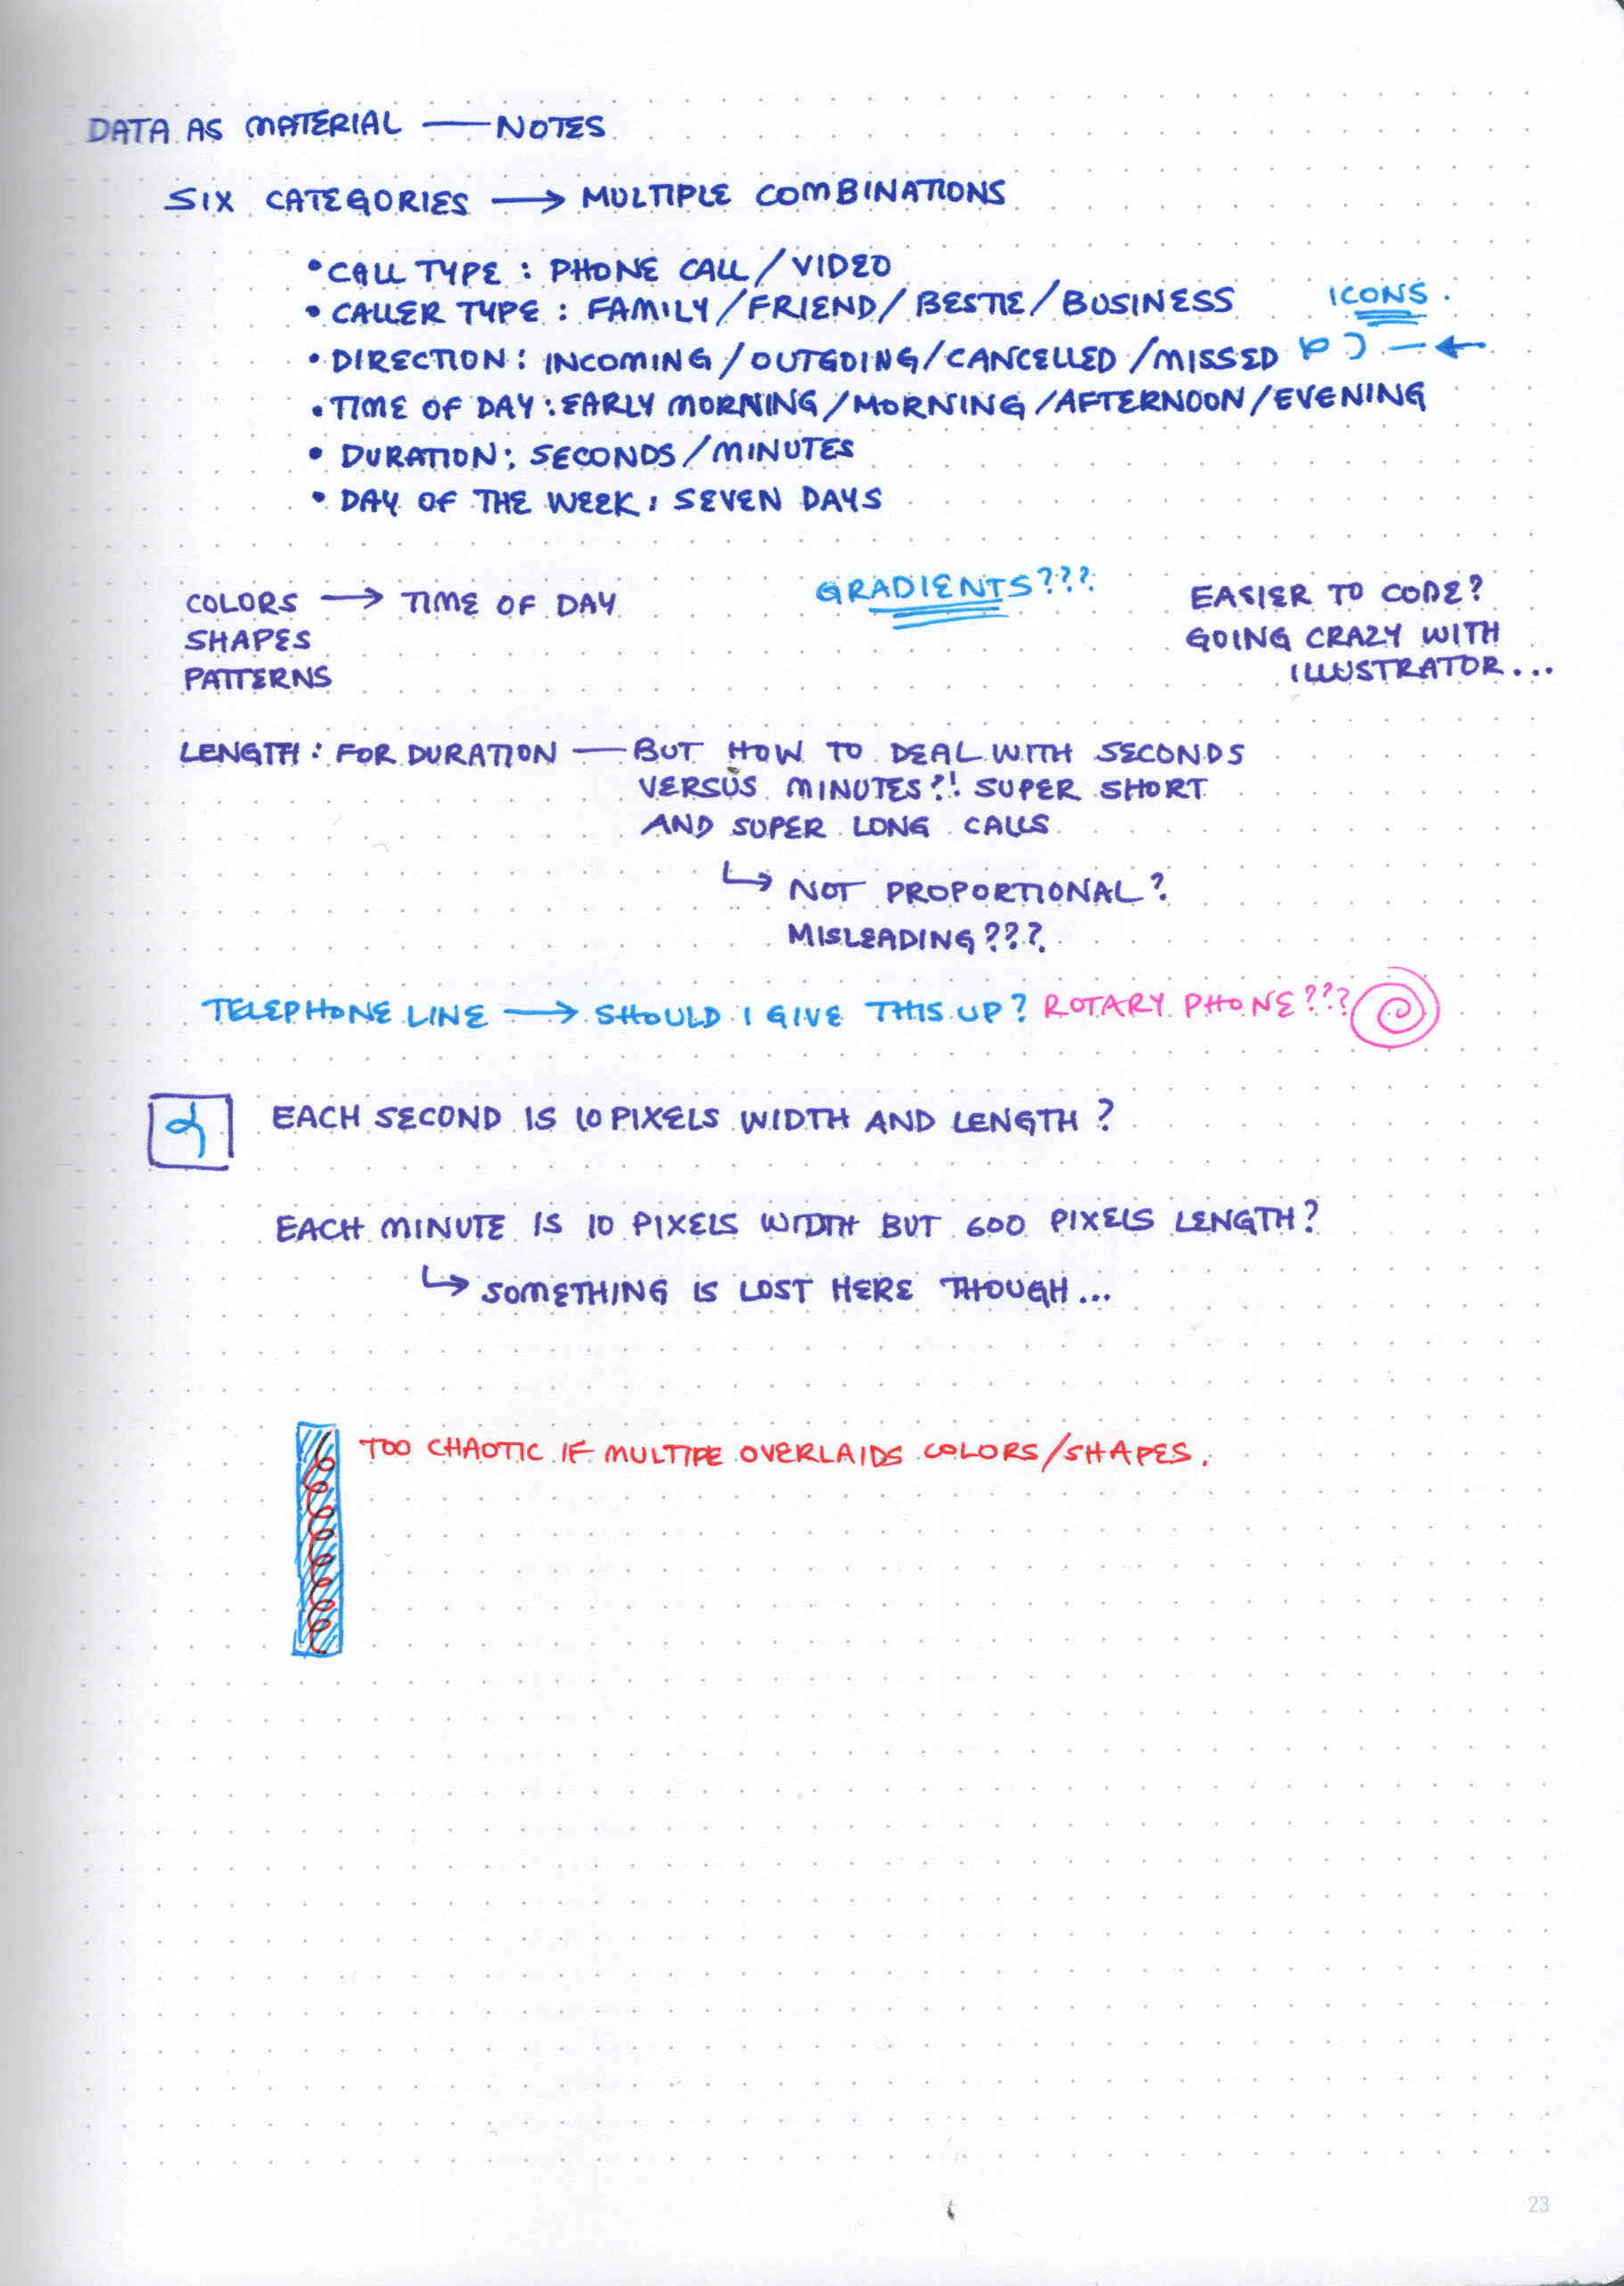 DATA AS MATERIAL — NOTES
SIX CATEGORIES → MULTIPLE COMBINATIONS
• CALL TYPE : PHONE CALL / VIDEO
• CALLER TYPE : FAMILY / FRIEND / BESTIE / BUSINESS
ICONS.
• DIRECTION : INCOMING / OUTGOING / CANCELLED / MISSED
• TIME OF DAY : EARLY MORNING / MORNING / AFTERNOON / EVENING
• DURATION : SECONDS / MINUTES
• DAY OF THE WEEK : SEVEN DAYS
COLORS → TIME OF DAY
SHAPES
PATTERNS
GRADIENTS???
EASIER TO CODE?
GOING CRAZY WITH
ILLUSTRATOR...
LENGTH : FOR DURATION — BUT HOW TO DEAL WITH SECONDS
VERSUS MINUTES?! SUPER SHORT
AND SUPER LONG CALLS
↳ NOT PROPORTIONAL?
MISLEADING???
TELEPHONE LINE → SHOULD I GIVE THIS UP? ROTARY PHONE???
EACH SECOND IS 10 PIXELS WIDTH AND LENGTH?
EACH MINUTE IS 10 PIXELS WIDTH BUT 600 PIXELS LENGTH?
↳ SOMETHING IS LOST HERE THOUGH...
TOO CHAOTIC IF MULTIPE OVERLAIDS COLORS/SHAPES.
23